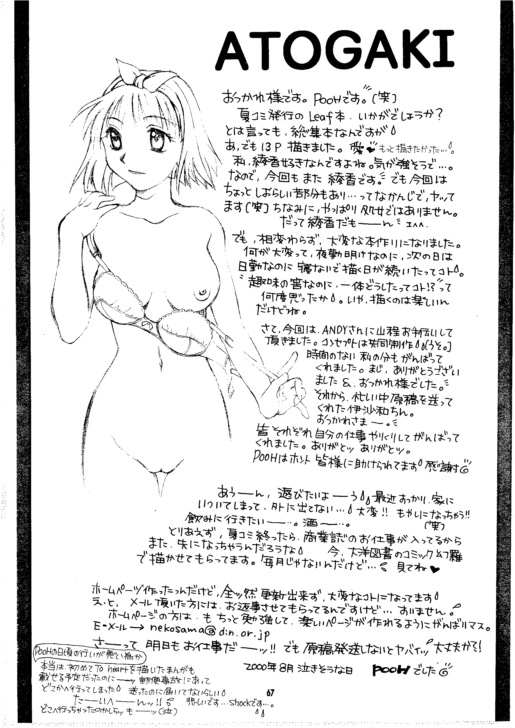 ATOGAKI
おつかれ様です。POOHです。(笑)
夏コミ発行のLeaf本、いかがでしょうか?
とは言っても、総集本なんですが
あ、でも13P描きました。 もっと描きたかった…。
私、綾香せろきなんですよね。気が強そうで…。
なので、今回もまた綾香です。でも今回は
ちょっとしばらしい部分もあり…ってなかんじで、ヤッて
ます(笑)ちなみに、やっぱり処女ではありません。
だって綾香だも——ん
でも、相変わらず、大変な本作りになりました。
何が大変って、夜勤明けなのに、次の日は
日勤なのに寝ないで描く日が続いたってコト。
趣味の筈なのに、一体どうしたってコト!?って
何度思ったか。いや、描くのは楽しいん
だけどね。
さて、今回は、ANDYさんに山程お手伝いして
頂きました。コンセプトは共同制作(うそ)。
時間のない私の分もがんばって
くれました。まじ、ありがとうござい
ました&、おつかれ様でした。
それから、忙しい中原稿を送って
くれた伊沙和ちん。
おつかれさまー。
皆それぞれ自分の仕事やりくりしてがんばって
くれました。ありがとッ ありがとッ。
POOHはホント皆様に助けられてます 感謝
あう—ん、遊びたいよ——う 最近すっかり、家に
いついてしまって、外に出てない…。大変!! もやしになっちゃう!!
飲みに行きたい——…。酒——…。 (笑)
とりあえず、夏コミ終ったら、商業誌のお仕事が入ってるから
また、失になっちゃうんだろうな 今、大洋図書のコミックの幻羅
で描かせてもらってます。毎月じゃないんだけど…。見てね♥
ホームページ作ったんだけど、全ッ然更新出来ず、大変なコトになってます
え、と、メール頂いた方には、お返事させてもらってるんですけど…すいません。
ホームページの方は、もちっと勉強して、楽しいページが作れるようにがんばりマス。
E-メール→nekosama@din.or.jp
さ——って 明日もお仕事だ—ッ!! でも原稿発送しないとヤバイッ 大丈夫か?!
POOHの日頃の行いが悪い為か 2000年8月 泣きそうな日 POOHでした
本当は、初めてTo heartを描いたまんがも
載せる予定だったのに——ッ 郵便事故にあって
どこかへ行ってしまった 送ったのに届いてならしい
た——い——ん——ッ!! 悲しいです…shockです…。
どこ行っちゃったのかしらッ も——ッ(泣)
67